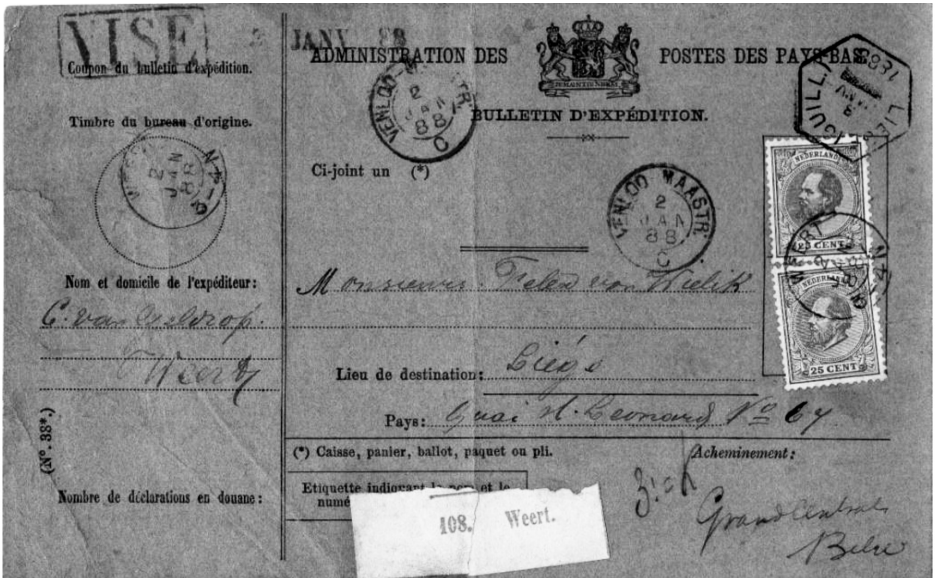 VISE
2 JANV 88
Coupon du bulletin d'expédition.
Timbre du bureau d'origine.
2
JAN
88
Nom et domicile de l'expéditeur:
C. van Geldrop.
Weert
(Nº. 38*.)
Nombre de déclarations en douane:
ADMINISTRATION DES POSTES DES PAYS-BAS.
JE MAINTIENDRAI
BULLETIN D'EXPÉDITION.
VENLOO-MAASTR.
2
JAN
88
C
Ci-joint un (*)
VENLOO MAASTR.
2
JAN
88
C
LIEGE
GUILL
NEDERLAND
25 CENT
WEERT
NEDERLAND
25 CENT
Monsieur van
Lieu de destination: Liége
Pays: Quai St Leonard No 67
(*) Caisse, panier, ballot, paquet ou pli.
Acheminement:
Etiquette indiquant le et le
numé
108. Weert.
Grand Central
Belge